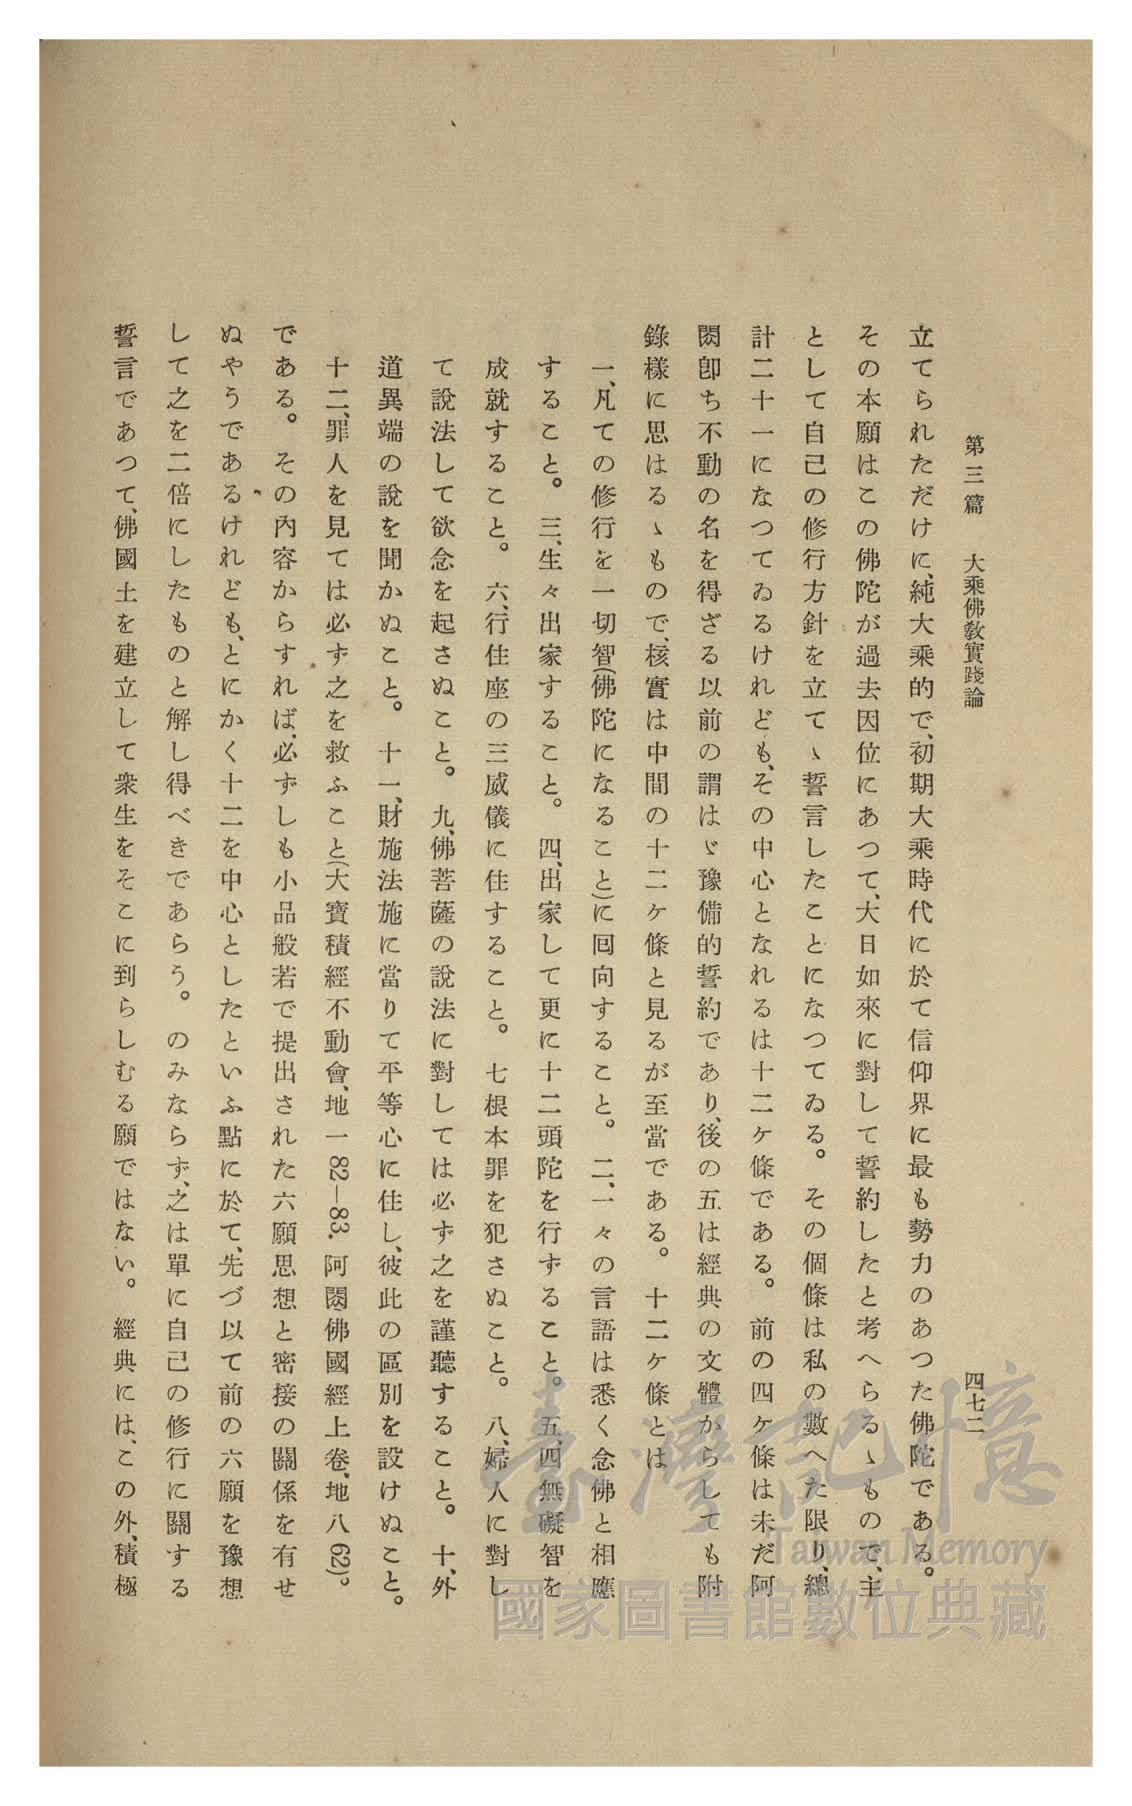 第三篇　大乘佛敎實踐論　四七二
立てられただけに、純大乘的で、初期大乘時代に於て信仰界に最も勢力のあつた佛陀である。
その本願はこの佛陀が過去因位にあつて、大日如來に對して誓約したと考へらるゝもので、主
として自己の修行方針を立てゝ誓言したことになつてゐる。その個條は私の數へた限り、總
計二十一になつてゐるけれども、その中心となれるは十二ケ條である。前の四ケ條は未だ阿
閦卽ち不動の名を得ざる以前の謂はゞ豫備的誓約であり、後の五は經典の文體からしても附
錄樣に思はるゝもので、核實は中間の十二ケ條と見るが至當である。十二ケ條とは
一、凡ての修行を一切智(佛陀になること)に囘向すること。二、一々の言語は悉く念佛と相應
すること。三、生々出家すること。四、出家して更に十二頭陀を行ずること。五、四無礙智を
成就すること。六、行住座の三威儀に住すること。七根本罪を犯さぬこと。八、婦人に對し
て說法して欲念を起さぬこと。九、佛菩薩の說法に對しては必ず之を謹聽すること。十、外
道異端の說を聞かぬこと。十一、財施法施に當りて平等心に住し、彼此の區別を設けぬこと。
十二、罪人を見ては必ず之を救ふこと(大寶積經不動會、地一82—83. 阿閦佛國經上卷、地八62)。
である。その內容からすれば、必ずしも小品般若で提出された六願思想と密接の關係を有せ
ぬやうであるけれども、とにかく十二を中心としたといふ點に於て、先づ以て前の六願を豫想
して之を二倍にしたものと解し得べきであらう。のみならず、之は單に自己の修行に關する
誓言であつて、佛國土を建立して衆生をそこに到らしむる願ではない。經典には、この外、積極
臺灣記憶
Taiwan Memory
國家圖書館數位典藏